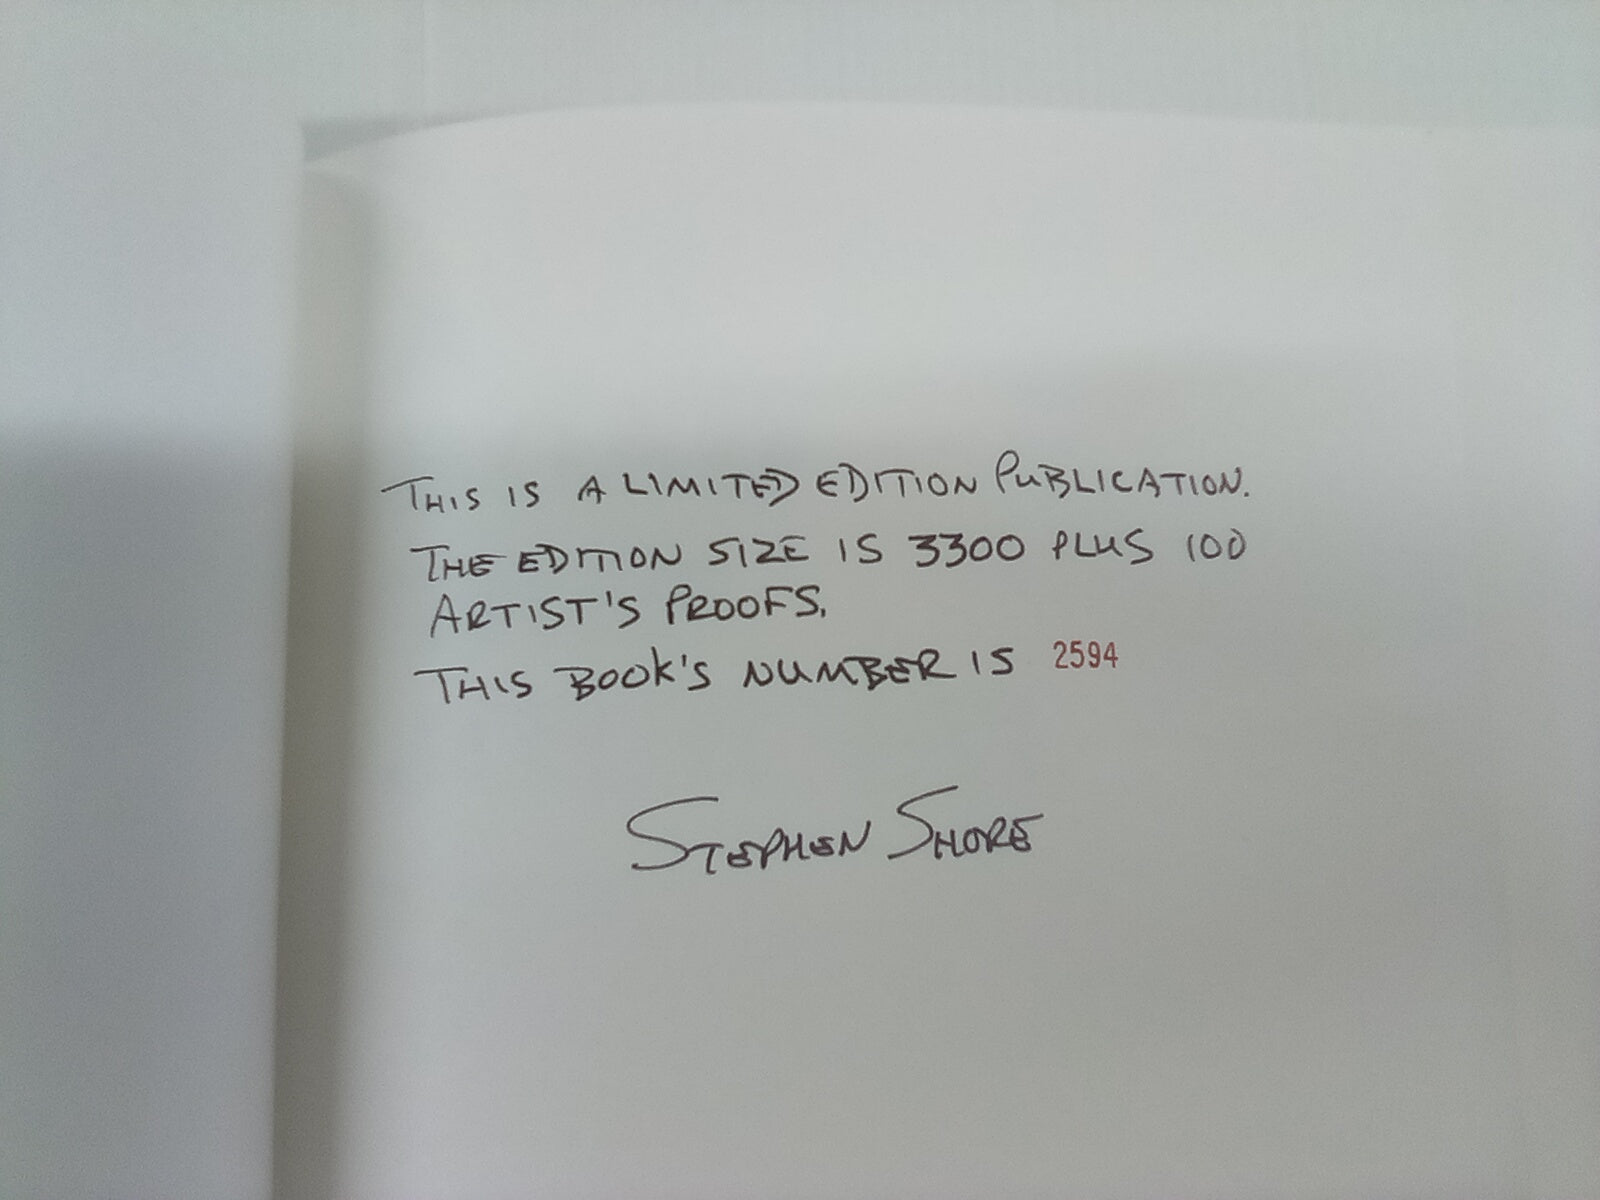 THIS IS A LIMITED EDITION PUBLICATION.
THE EDITION SIZE IS 3300 PLUS 100
ARTIST'S PROOFS.
THIS BOOK'S NUMBER IS 2594
STEPHEN SHORE